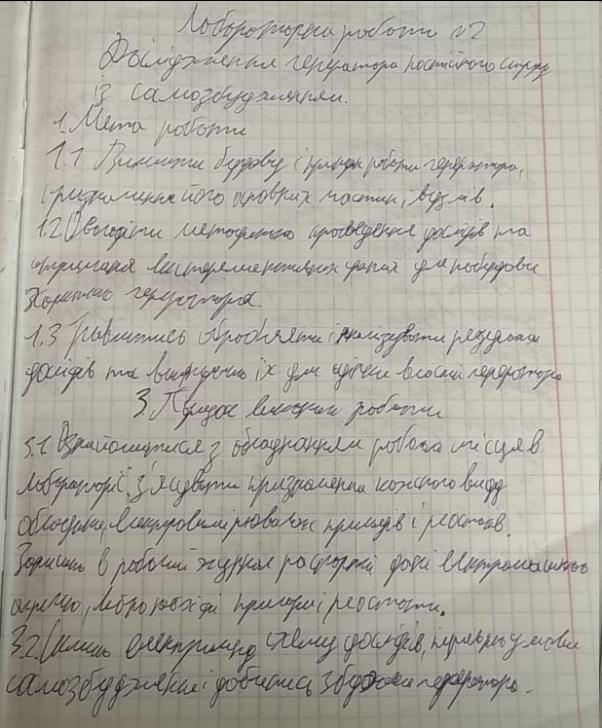 Лабораторна робота №2
Дослідження генератора постійного струму
із самозбудженням.
1. Мета роботи
1.1 Вивчити будову і принцип роботи генератора,
призначення його основних частин і вузлів.
1.2 Оволодіти методикою проведення дослідів та
отримання експериментальних даних для побудови
характ генератора.
1.3 Навчитись обробляти і аналізувати результати
дослідів та їх для оцінки властив генератора
3. Порядок виконання роботи
3.1 Ознайомитися з обладнанням робочого місця в
лабораторії, з'ясувати призначення кожного виду
обладнання, електровимірювальних приладів і реостатів.
Записати в робочий журнал паспортні дані електромашинного
агрегату, прилади і реостати.
3.2 електричну схему дослідів, перевірити умови
самозбудження і добитись збудження генератора.